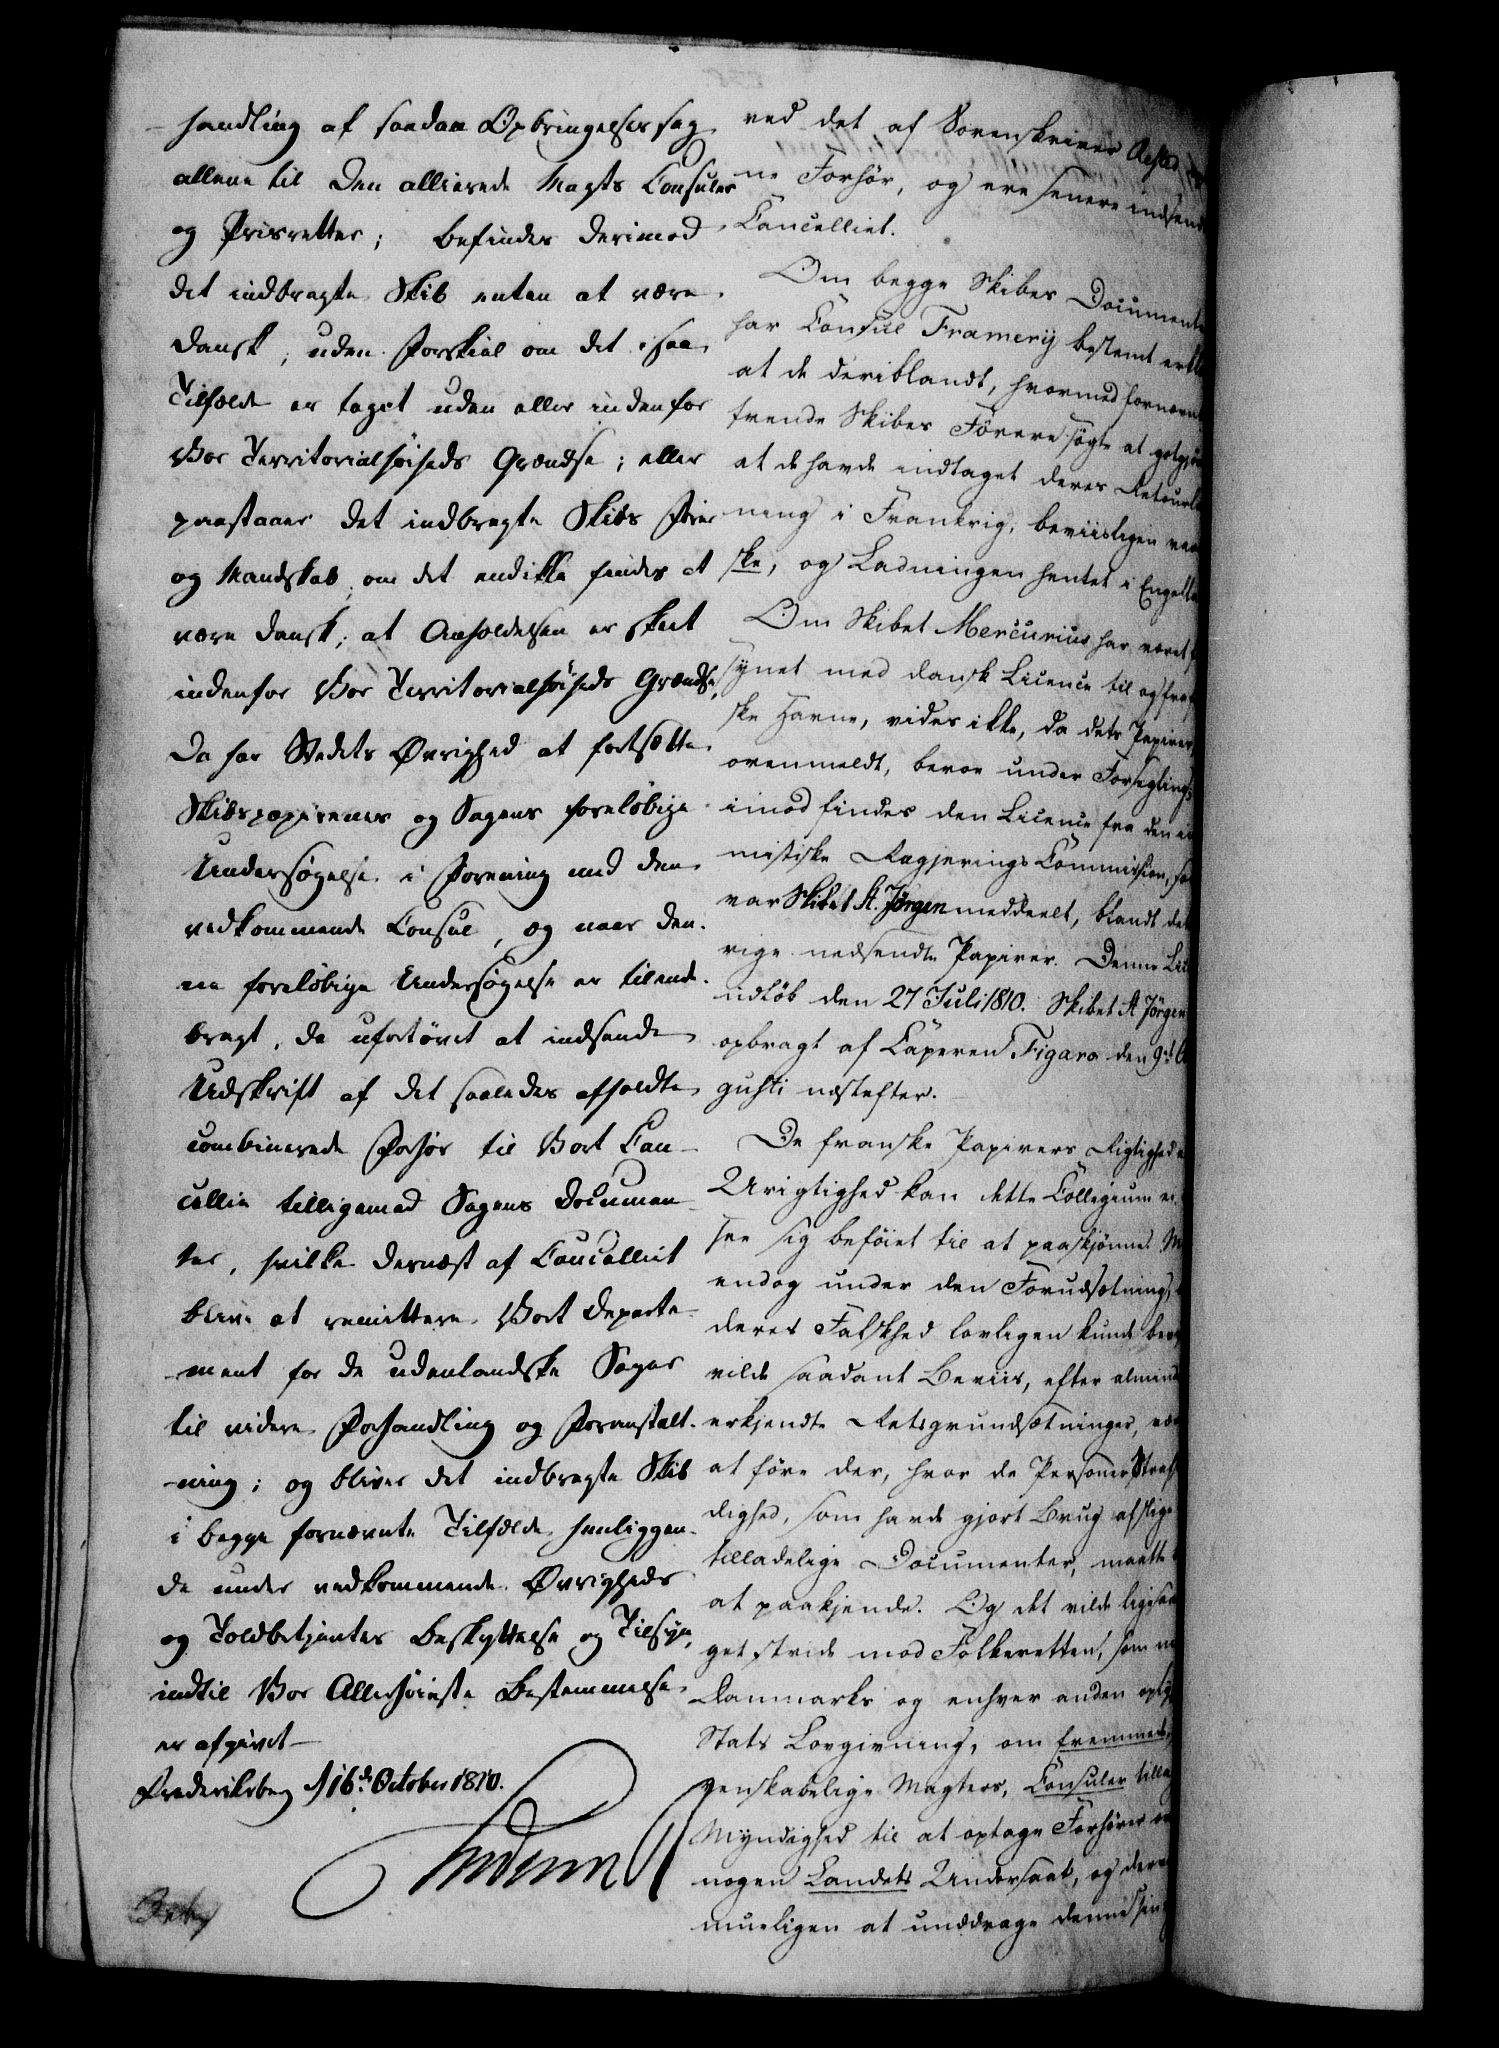 handling af saadan Opbringelses sag
allene til den allierede Magts Consuler
og Prisretter; befindes derimod
det indbragte Skib enten at være
dansk, uden Forskiel om det i saa
Tilfælde er taget uden eller indenfor
Vor Territorialhøiheds Grændse; eller
paastaaer det indbragte Skibs Fører
og Mandskab, om det endikke findes at
være dansk, at Anholdelsen er skeet
indenfor Vor Territorialhøiheds Grændse,
da har Stedets Øvrighed at fortsætte
Skibspapirernes og Sagens foreløbige
Undersøgelse i Forening med den
vedkommende Consul, og naar den-
ne foreløbige Undersøgelse er tilende-
bragt, da ufortøvet at indsende
Udskrift af det saaledes afholdte
combinerede Forhør til Vort Can-
cellie tilligemed Sagens Documen-
ter, hvilke dernæst af Cancelliet
blive at remittere Vort Departe-
ment for de udenlandske Sager
til videre Forhandling og Foranstalt-
ning; og bliver det indbragte Skib
i begge fornævnte Tilfælde henliggen-
de under vedkommende Øvrigheds
og Toldbetjentes Beskyttelse og Tilsyn,
indtil Vor Allerhøieste Bestemmelse
er afgivet
Frederiksberg d 16de October 1810.
ved det af Sorenskriver
ne Forhør, og ere senere indsendt
Cancelliet.
Om begge Skibes Documenter
har Consul Framery bestemt
at de deriblandt, hvormed
trende Skibes Förere søgte at
at de havde indtaget deres
ning i Frankrig, beviisligen
ske, og Ladningen hentet i
Om Skibet Mercurius har været
synet med dansk Licence til og
ske Havne, vides ikke, da dets Papirer,
ovenmeldt, beroe under
imod findes den Licence fra den
mistiske Regjerings Commission,
var Skibet St. Jørgen meddeelt, blandt
rige nedsendte Papirer. Denne
udløb den 27 Juli 1810. Skibet St Jørgen
opbragt af Caperen Figaro den 9de
gusti næstefter.
De franske Papirers Rigtighed
Urigtighed kan dette Collegium
see sig beføiet til at paaskjønne.
endog under den Forudsætning,
deres Falskhed lovligen kunde
vilde saadant Beviis, efter
erkjendte Retsgrundsætninger,
at føre der, hvor de Personers
dighed, som havde gjort Brug af
tilladelige Documenter, maatte
at paakjende. Og det vilde
get stride mod Folkeretten, som
Danmarks og enhver anden
Stats Lovgivning, om fremmede,
venskabelige Magters, Consuler
Myndighed til at optage Forhører
nogen Landets Undersaat, og
mueligen at unddrage denne